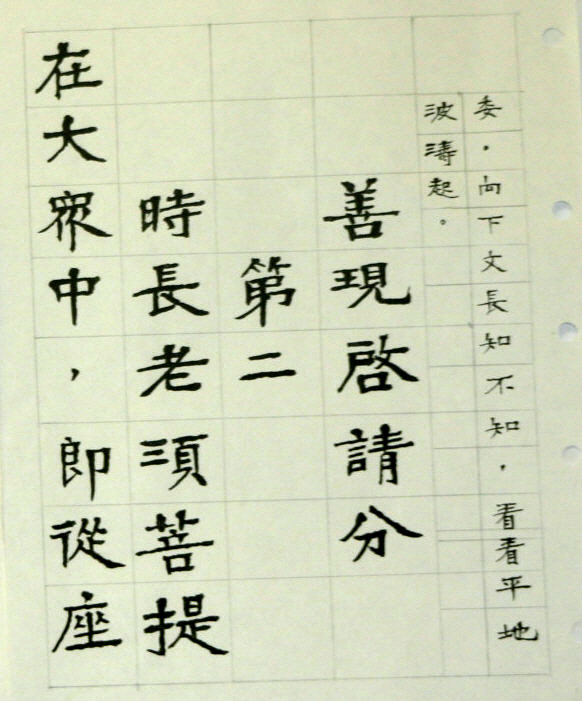 委。向下文長知不知，看看平地
波濤起。
善現啓請分
第二
時長老須菩提
在大眾中，即從座